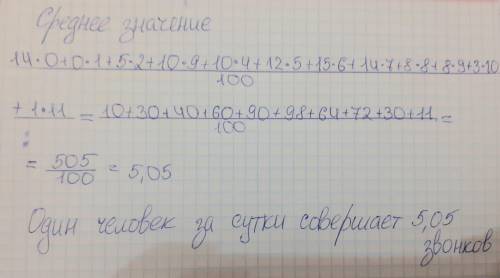 Среднее значение
14·0+0·1+5·2+10·9+10·4+12·5+15·6+14·7+8·8+8·9+3·10
100
+1·11 = 10+30+40+60+90+98+64+72+30+11 =
100
= 505/100 = 5,05
Один человек за сутки совершает 5,05
звонков